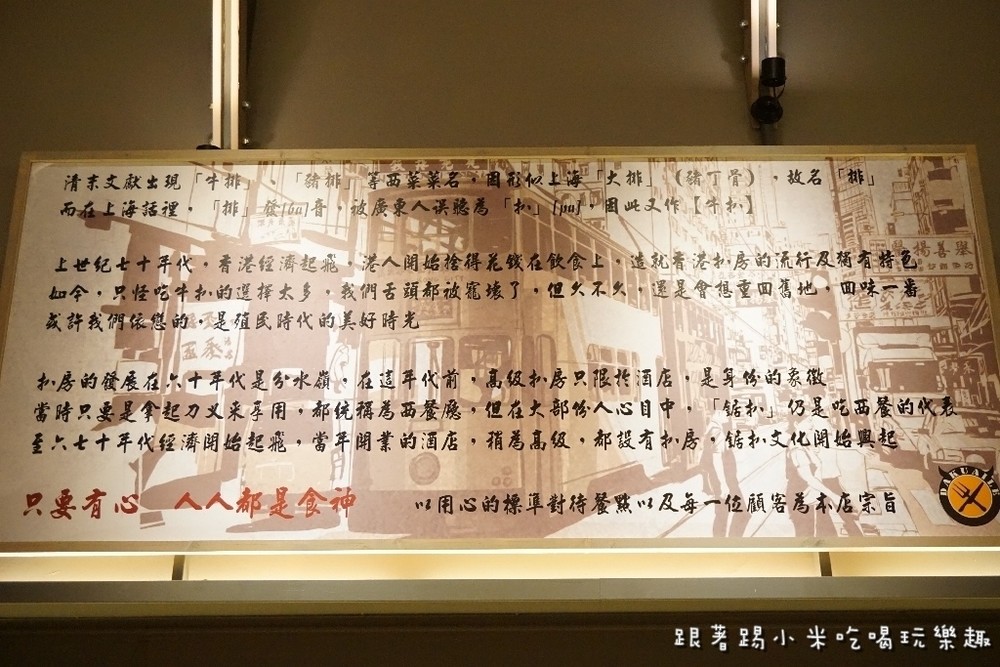 清末文獻出現「牛排」、「豬排」等西菜菜名，因形似上海「大排」（豬丁骨），故名「排」
而在上海話裡，「排」發[ba]音，被廣東人误聽為「扒」[pa]，因此又作【牛扒】
上世紀七十年代，香港經濟起飛，港人開始捨得花錢在飲食上，造就香港扒房的流行及獨有特色
如今，只怪吃牛扒的選擇太多，我們舌頭都被寵壞了，但久不久，還是會想重回舊地，回味一番
或許我們依戀的，是殖民時代的美好時光
扒房的發展在六十年代是分水嶺，在這年代前，高級扒房只限於酒店，是身份的象徵
當時只要是拿起刀叉來享用，都统稱為西餐廳，但在大部份人心目中，「鋸扒」仍是吃西餐的代表
至六七十年代經濟開始起飛，當年開業的酒店，稍為高級，都設有扒房，鋸扒文化開始興起
只要有心 人人都是食神
以用心的標準對待餐點以及每一位顧客為本店宗旨
跟著踢小米吃喝玩樂趣